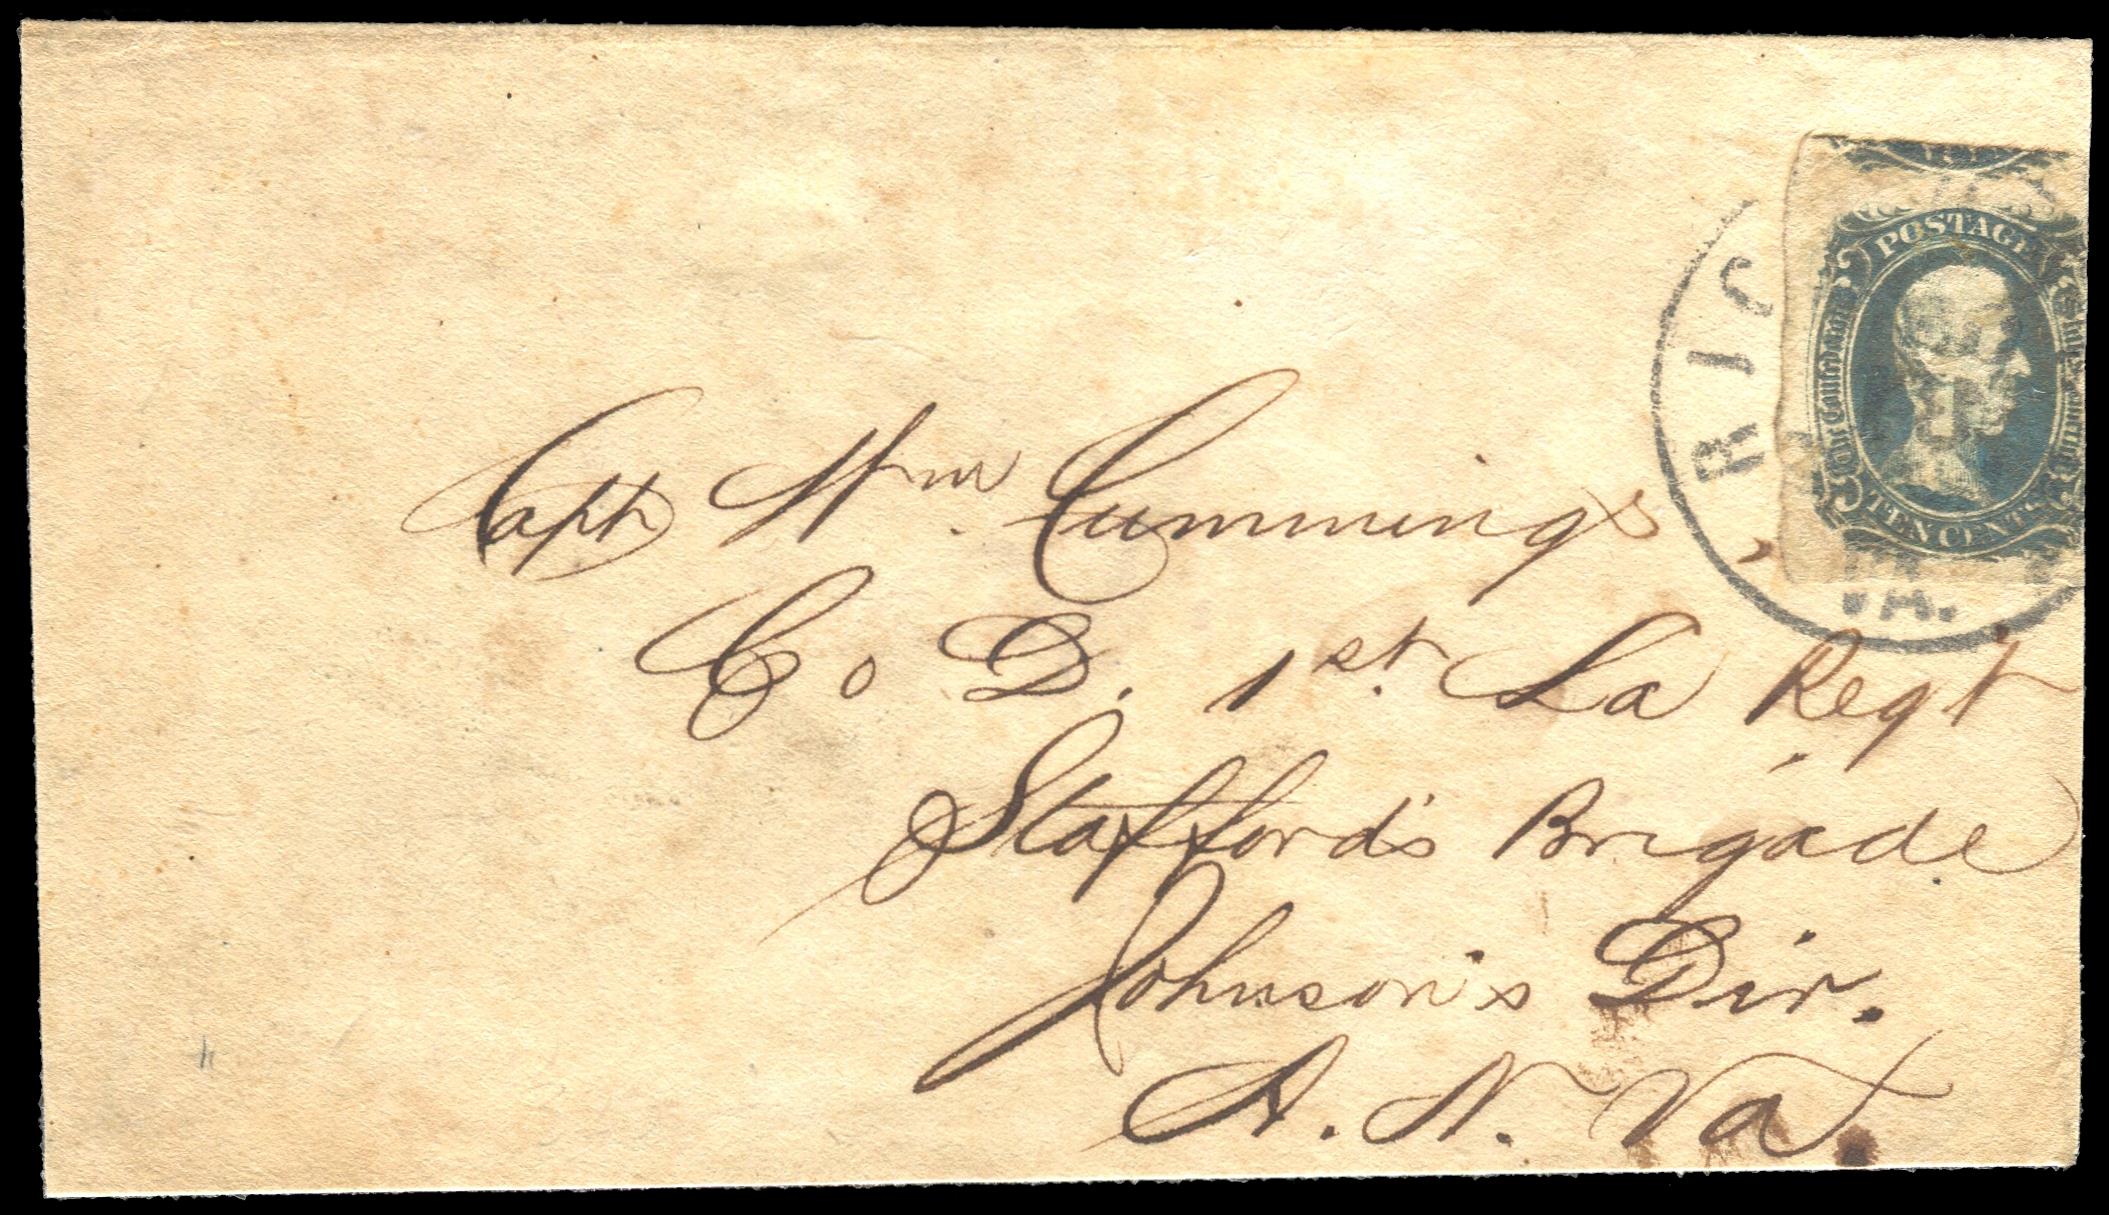 RIC
VA.
POSTAGE
The Confederate States of America
TEN CENTS
Capt Wm. Cummings
Co D. 1st. La Regt.
Stafford's Brigade
Johnson's Div.
A. N. Va.